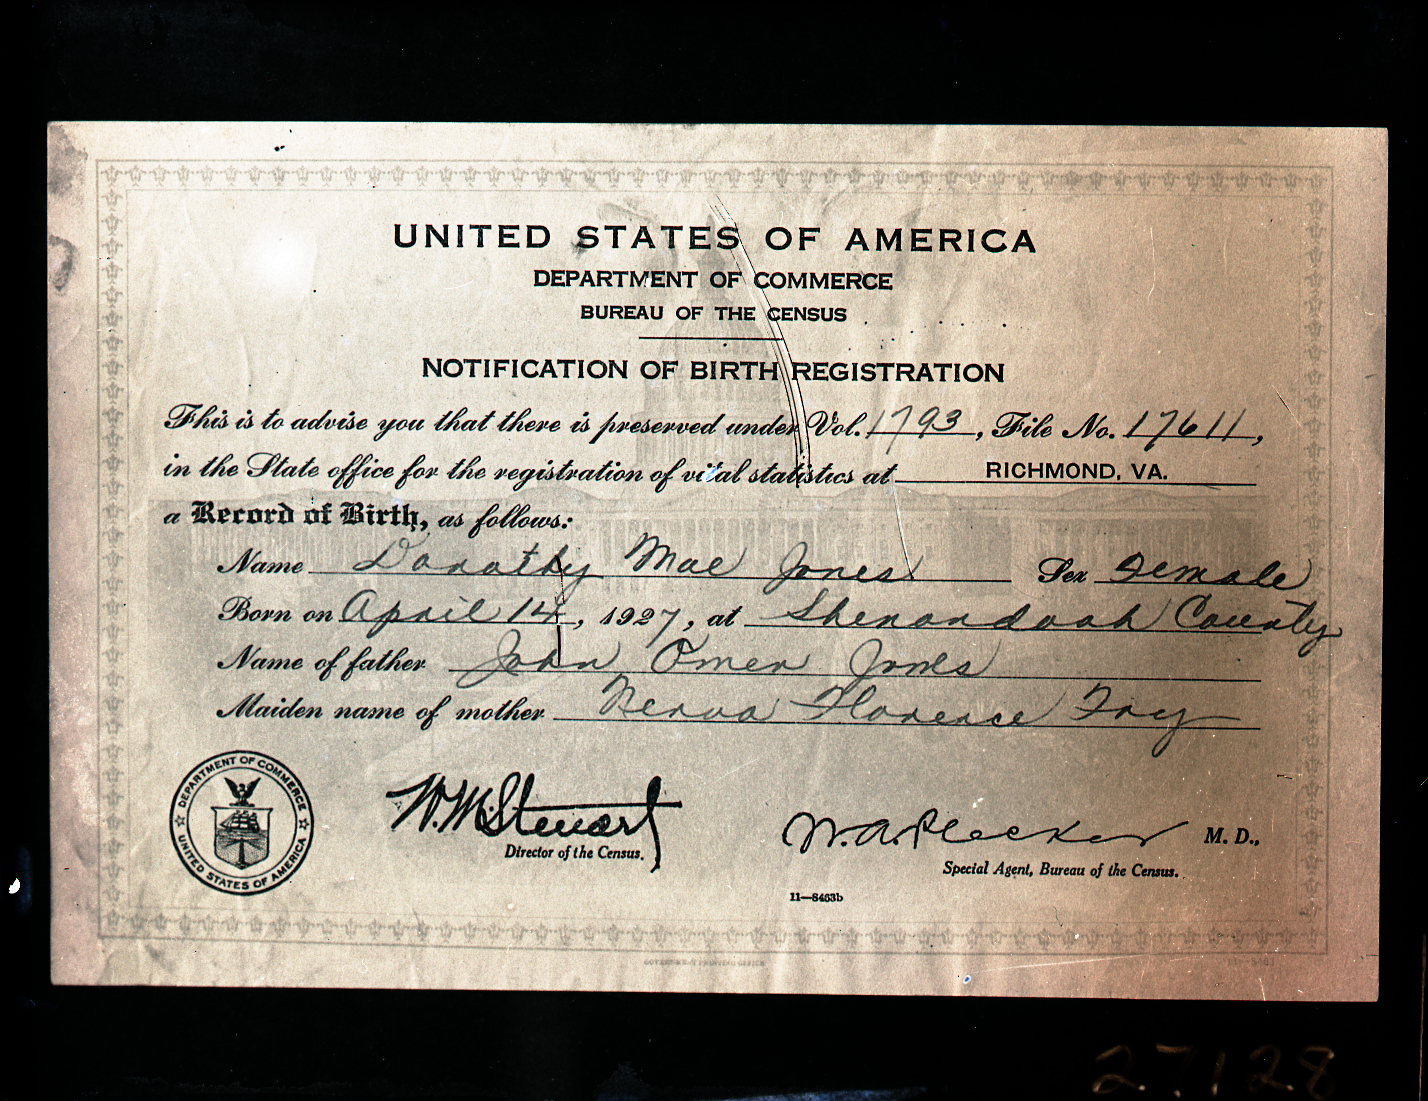 UNITED STATES OF AMERICA
DEPARTMENT OF COMMERCE
BUREAU OF THE CENSUS
NOTIFICATION OF BIRTH REGISTRATION
This is to advise you that there is preserved under Vol. 1793, File No. 17611,
in the State office for the registration of vital statistics at RICHMOND, VA.
a Record of Birth, as follows:
Name Dorothy Mae Jones Sex Female
Born on April 14, 1927, at Shenandoah County
Name of father John Omer Jones
Maiden name of mother Nerva Florence Fry
DEPARTMENT OF COMMERCE
UNITED STATES OF AMERICA
W. M. Steuart
Director of the Census.
W. A. Plecker M. D.,
Special Agent, Bureau of the Census.
11—8463b
GOVERNMENT PRINTING OFFICE
27128